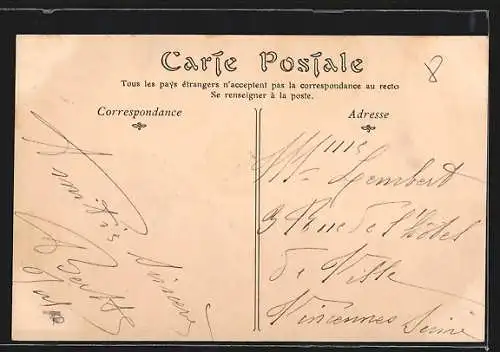 Carte Postale
8
Tous les pays étrangers n'acceptent pas la correspondance au recto
Se renseigner à la poste.
Correspondance
Adresse
Amitiés
Sincères
Berthe
Mlles Lembert
3 Rue de l'Hôtel
de Ville
Vincennes Seine